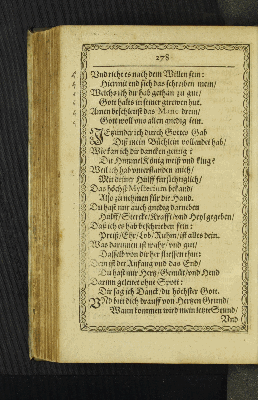 278
Vnd richt es nach dem Willen sein:
Hiermit end sich das schreiben mein/
Welchs ich du hab gethan zu gut/
Gott halts in seiner getrewen hut.
Amen beschleust das Mane drein/
Gott woll vns allen gnedig sein.
JEtzund er ich durch Gottes Gab
Diß mein Büchlein vollendet hab/
Wie kan ich dir dancken genug?
Du Himmel König weiß vnd klug?
Weil ich hab vnterstanden mich/
Mit deiner Hülff fürsichtiglich/
Das höchst Mysterium bekand/
Also zu nehmen für die Hand.
Du hast mir auch gnedig darneben
Hülff/Stercke/Krafft vnd Heyl gegeben/
Daß ich es hab beschrieben fein:
Preiß/Ehr/Lob/Ruhm/ist alles dein.
Was darinnen ist wahr/vnd gut/
Dasselb von dir her fliessen thut:
Denn ist der Anfang vnd das End/
Du hast mir Hertz/Gemüt/vnd Hend
Darinn geleitet ohne Spott:
Die sag ich Danck/du höchster Gott.
VNd bitt dich drauff von Hertzen Grund/
Wann kommen wird mein letzte Stund/
Vnd